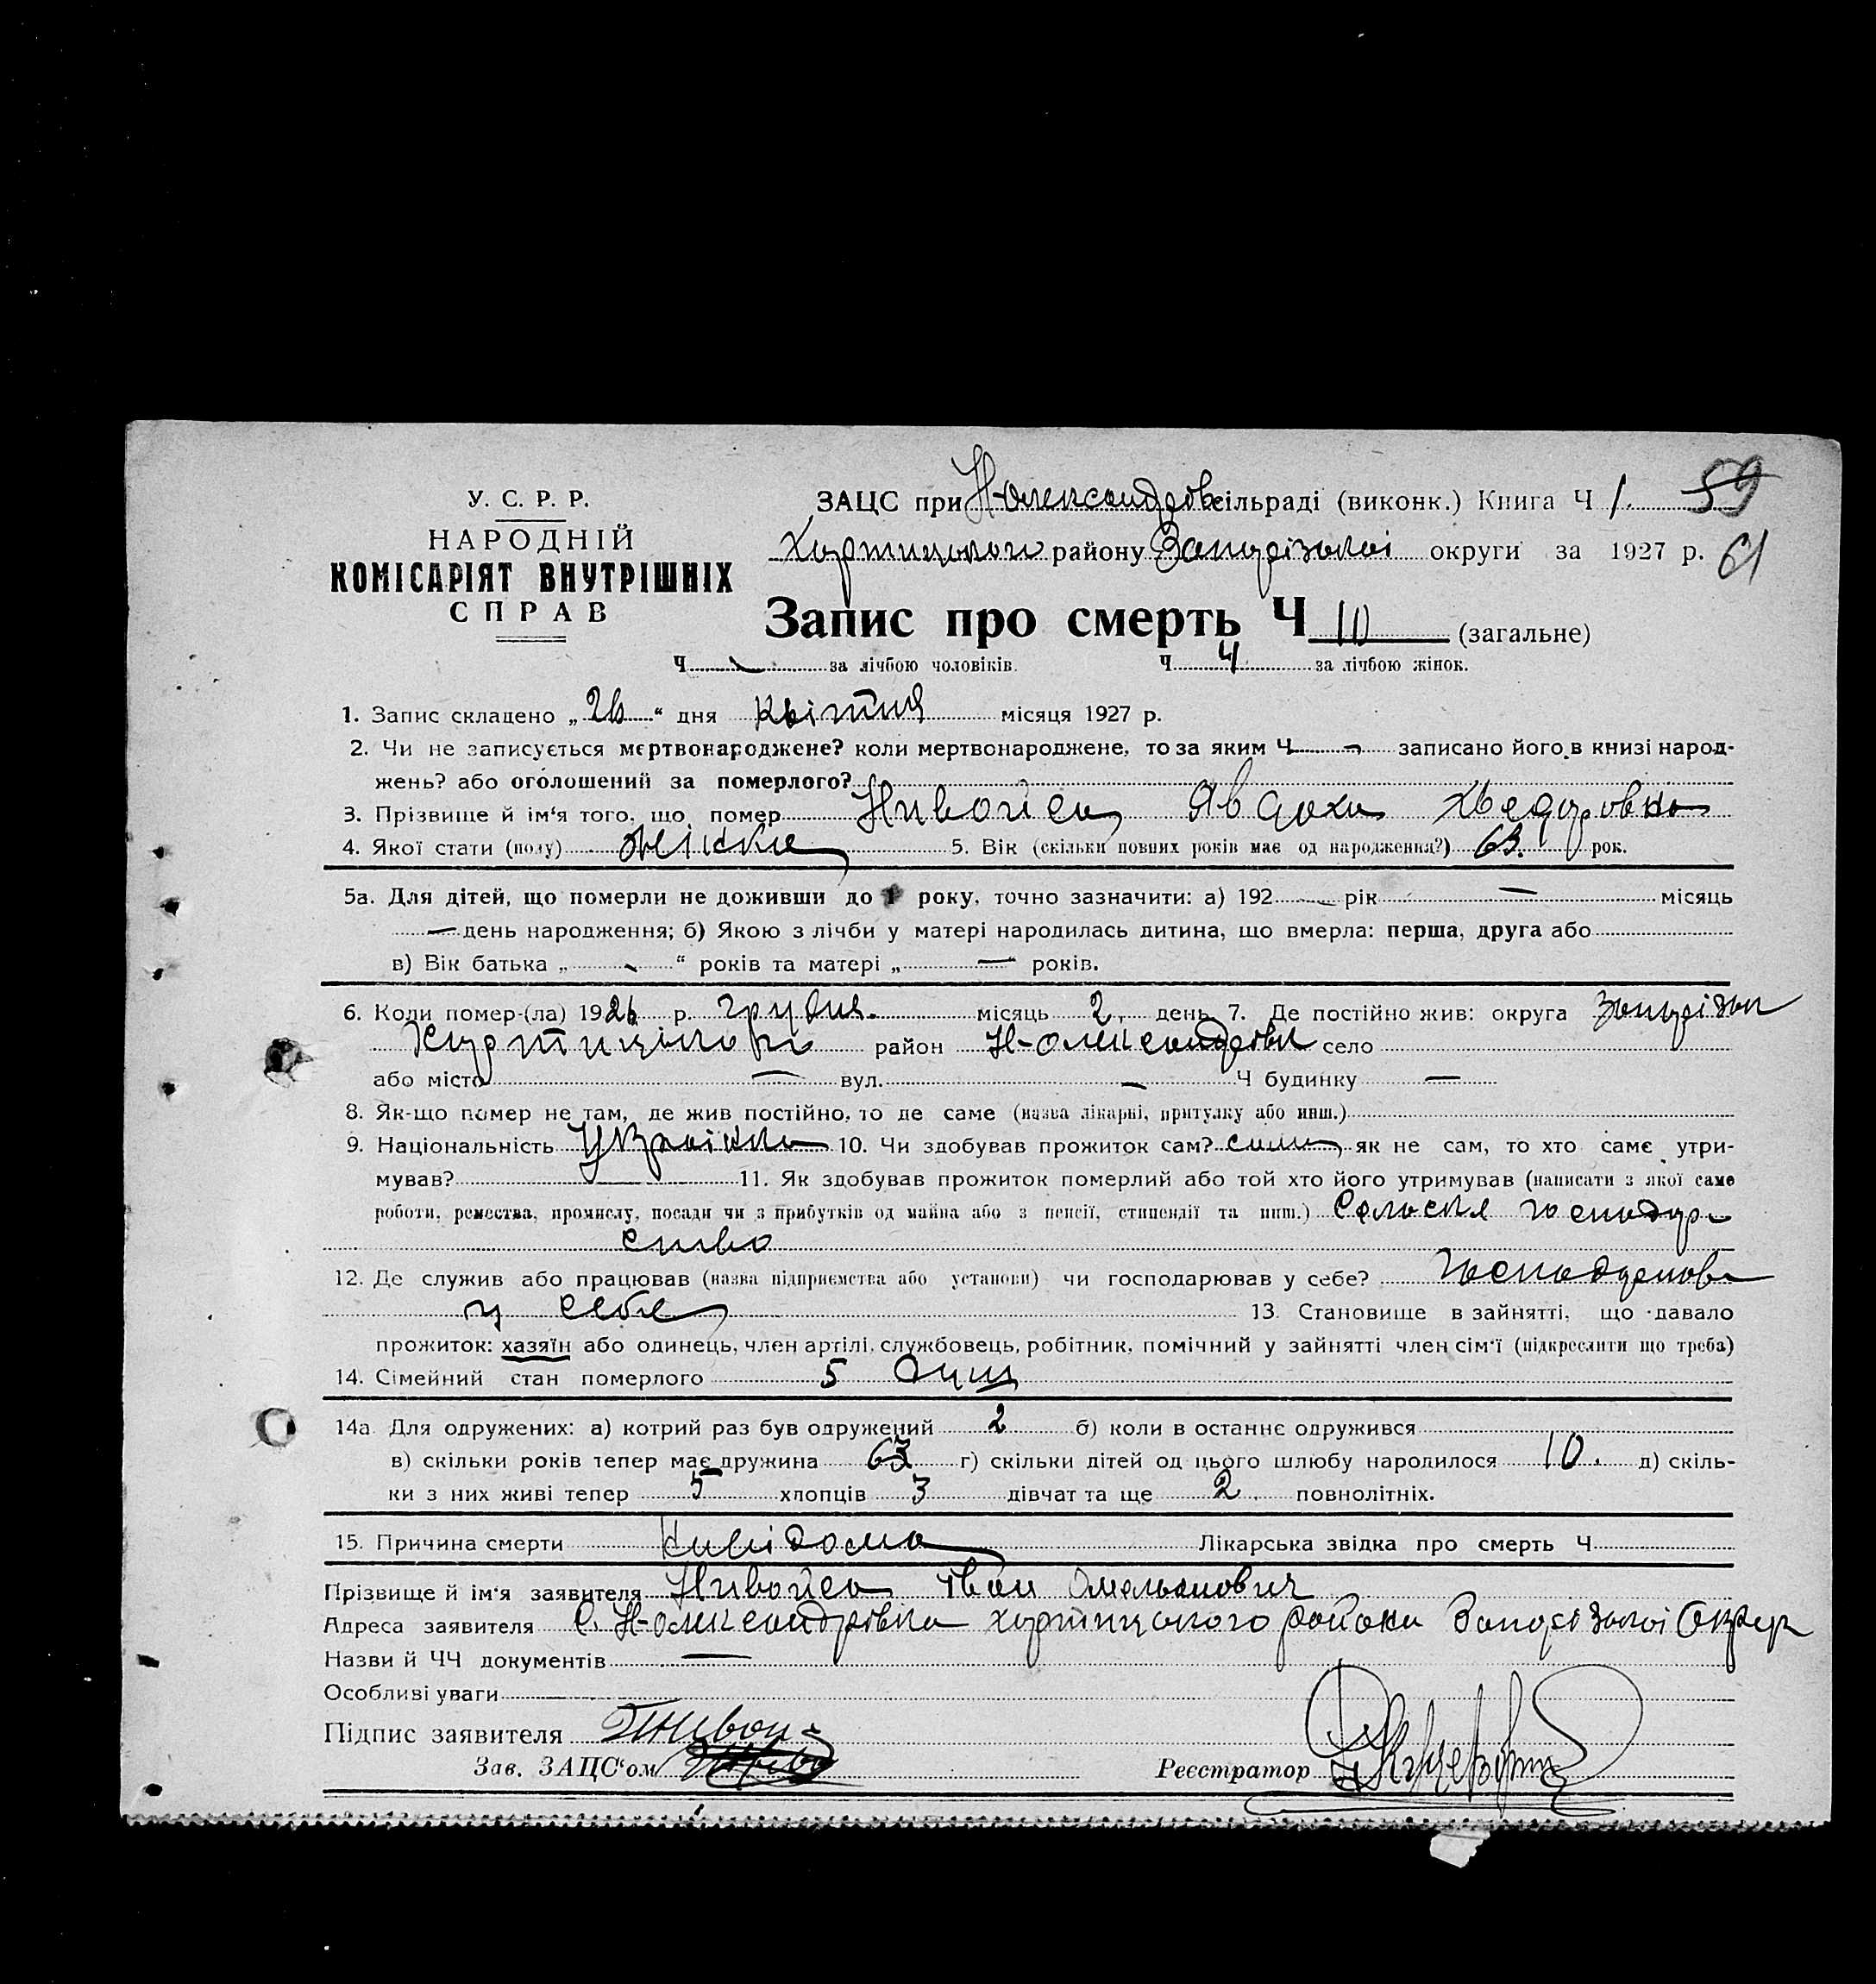 У. С. Р. Р.
НАРОДНІЙ
КОМІСАРІЯТ ВНУТРІШНІХ
СПРАВ
ЗАЦС при Н-Олександрівск сільраді (виконк.) Книга Ч 1. 59
Хортицького району Запорізької округи за 1927 р. 61
Запис про смерть Ч 10 (загальне)
Ч — за лічбою чоловіків. Ч 4 за лічбою жінок.
1. Запис складено „26“ дня квітня місяця 1927 р.
2. Чи не записується мертвонароджене? коли мертвонароджене, то за яким Ч — записано його в книзі народ-
жень? або оголошений за померлого?
3. Прізвище й ім‘я того, що помер Явдоха Хведоровна
4. Якої стати (полу) жіноча 5. Вік (скільки повних років має од народження?) 63. рок.
5а. Для дітей, що померли не доживши до 1 року, точно зазначити: а) 192 — рік — місяць
— день народження; б) Якою з лічби у матері народилась дитина, що вмерла: перша, друга або
в) Вік батька „ — “ років та матері „ — “ років.
6. Коли помер-(ла) 1926 р. грудня. місяць 2. день 7. Де постійно жив: округа Запорізьк
Хортицького район Н-Олександрівк село
або місто — вул. — Ч будинку —
8. Як-що помер не там, де жив постійно, то де саме (назва лікарні, притулку або инш.)
9. Національність Українка 10. Чи здобував прожиток сам? сама як не сам, то хто саме утри-
мував? — 11. Як здобував прожиток померлий або той хто його утримував (написати з якої саме
роботи, ремества, промислу, посади чи з прибутків од майна або з пенсії, стипендії та инш.) Сельске господар
ство
12. Де служив або працював (назва підприємства або установи) чи господарював у себе? господарював
у себе 13. Становище в зайнятті, що давало
прожиток: хазяїн або одинець, член артілі, службовець, робітник, помічний у зайнятті член сім‘ї (підкреслити що треба)
14. Сімейний стан померлого 5 душ
14а. Для одружених: а) котрий раз був одружений 2 б) коли в останнє одружився
в) скільки років тепер має дружина 63 г) скільки дітей од цього шлюбу народилося 10. д) скіль-
ки з них живі тепер 5 хлопців 3 дівчат та ще 2 повнолітніх.
15. Причина смерти Лікарська звідка про смерть Ч
Прізвище й ім‘я заявителя Іван Омельянович
Адреса заявителя С. Н-Олександрівка Хортицького району Запорізької Округи
Назви й ЧЧ документів —
Особливі уваги
Підпис заявителя
Зав. ЗАЦС‘ом
Реєстратор